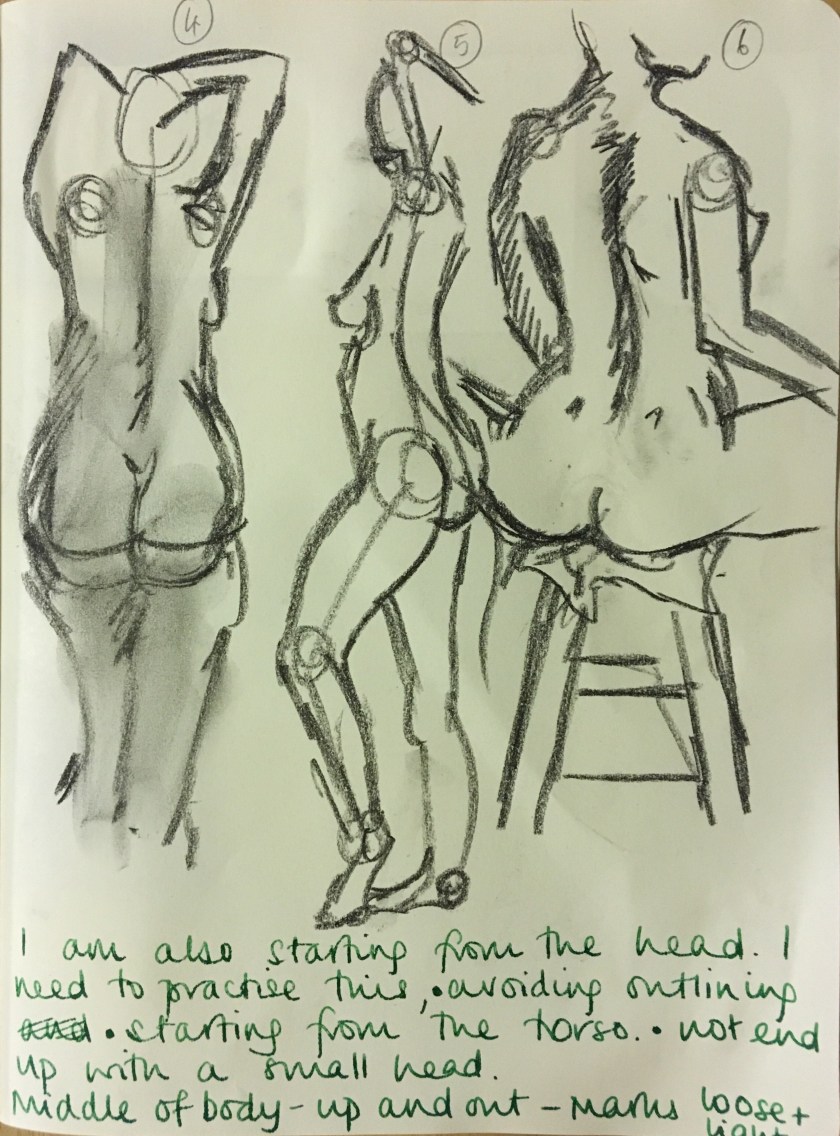 4 5 6
I am also starting from the head. I
need to practise this, • avoiding outlining
• starting from the torso. • not end
up with a small head.
Middle of body - up and out - Marks loose +
light